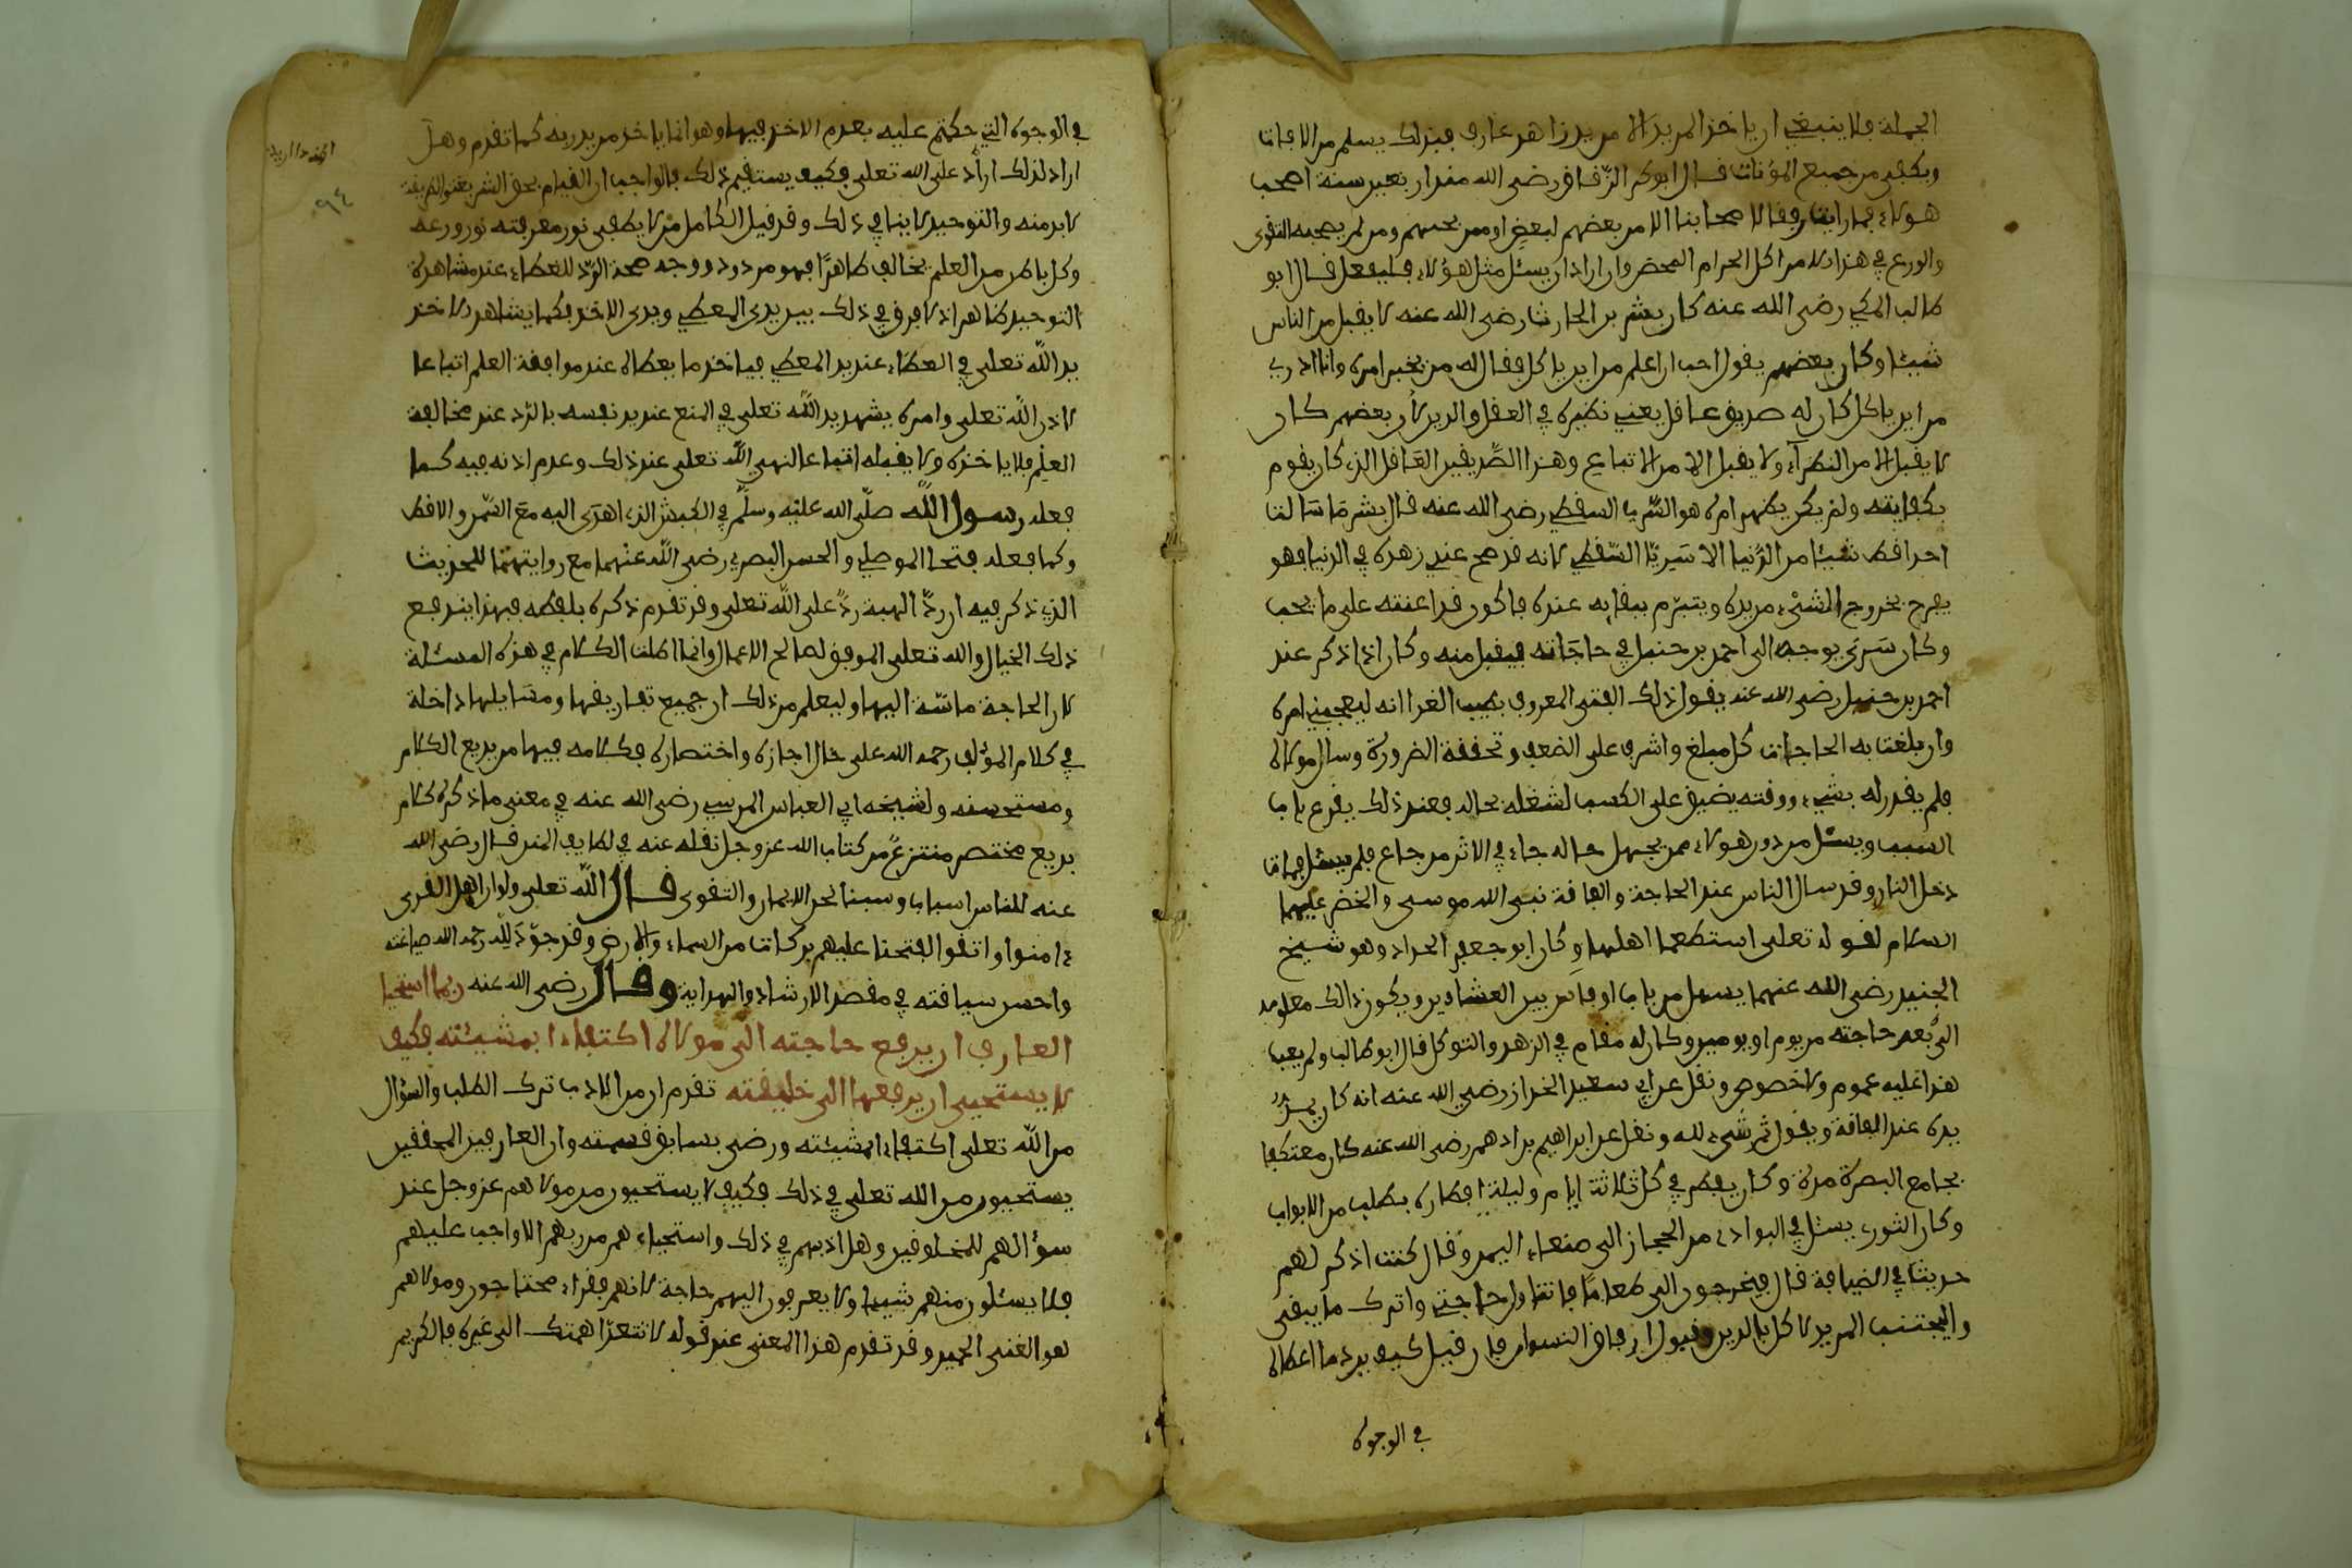 الجملة فلا ينبغي ان ياخذ المريد الا من يد زاهد عارف فبذلك يسلم من الافات
ويكفى من جميع المؤنات قال ابو بكر الزقاق رضى الله منذ اربعين سنة اصحب
هولاء فما رايت رفقا لاصحابنا الا من بعضهم لبعض او ممن يحبهم ومن لم يصحبه التقوى
والورع في هذا الامر اكل الحرام المحض وان اراد ان يسئل مثل هؤلاء فليفعل قال ابو
طالب المكي رضى الله عنه كان بشر بن الحارث رضى الله عنه لا يقبل من الناس
شيئا وكان بعضهم يقول احب ان اعلم من اين ياكل فقال له من يخبر امره وانا ادري
من اين ياكل كان له صديق عاقل يعني نظيره في العقل والدين لان بعضهم كان
لا يقبل الا من النظراء ولا يقبل الا من الاتباع وهذا الصديق العاقل الذي كان يقوم
بكفايته ولم يكن يظهر امره هو السري السقطي رضى الله عنه قال بشر ما سالت
احدا قط شيئا من الدنيا الا سريا السقطي لانه قد صح عندي زهده في الدنيا فهو
يفرح بخروج الشيء من يده ويتبرم ببقايه عنده فاكون قد اعنته على ما يحب
وكان سري يوجه الى احمد بن حنبل في حاجاته فيقبل منه وكان اذا ذكر عند
احمد بن حنبل رضى الله عنه يقول ذلك الفتى المعروف بطيب الغذا انه ليعجبني امره
وان بلغت به الحاجات كل مبلغ واشرف على الضعف وتحققة الضرورة وسال مولاه
فلم يقدر له بشيء ووقته يضيق على الكسب لشغله بحاله فعند ذلك يقرع باب
السبب ويسئل من دون هولاء ممن يجهل حاله جاء في الاثر من جاع فلم يسئل فمات
دخل النار وقد سال الناس عند الحاجة والفاقة نبي الله موسى والخضر عليهما
السلام لقوله تعلى استطعما اهلها وكان ابو جعفر الحداد وهو شيخ
الجنيد رضى الله عنهما يسئل من باب او باين بين العشاءين ويكون ذالك معلومه
الى بعد حاجته من يوم او يومين وكان له مقام في الزهد والتوكل قال ابو طالب ولم يعب
هذا عليه عموم ولا خصوص ونقل عن ابي سعيد الخراز رضى الله عنه انه كان يمد
يده عند الفاقة ويقول ثم شيء لله ونقل عن ابراهيم بن ادهم رضى الله عنه كان معتكفا
بجامع البصرة مدة وكان يفطر في كل ثلاثة ايام وليلة افطاره يطلب من الابواب
وكان الثوري يسئل في البوادي من الحجاز الى صنعاء اليمن وقال كنت اذكر لهم
حديثا في الضيافة قال فيخرجون الى طعاما فاتناول حاجتي واترك ما يبقى
واليجتنب المريد الاكل بالدين وقبول ارفاق النسوان فان قيل كيف يرد ما اعطاه
في الوجوه
في الوجوه التي حكمتم عليه بعدم الاخذ فيها وهو انما ياخذ من يد ربه كما تقدم وهل
اراد لذلك اراد على الله تعلى فكيف يستقيم ذلك فالواجب ان القيام بحق الشريعة والحقيقة
لا بد منه والتوحيد لا ينافي ذلك وقد قيل الكامل من لا يطفى نور معرفته نور ورعه
وكل باطن من العلم يخالف ظاهرا فهو مردود ووجه صحة الرد للعطاء عند مشاهدة
التوحيد ظاهر اذ لا فرق في ذلك بين يدى المعطي ويدى الاخذ فكما يشاهد الاخذ
يد الله تعلى في العطاء عند يد المعطي فياخذ ما يعطاه عند موافقة العلم اتباعا
لاذن الله تعلى وامره يشهد يد الله تعلى في المنع عند يد نفسه بالرد عند مخالفة
العلم فلا ياخذه ولا يقبله اتباعا لنهي الله تعلى عند ذلك وعدم اذنه فيه كما
فعله رسول الله صلى الله عليه وسلم في الكبش الذي اهدى اليه مع السمن والاقط
وكما فعله فتح الموصلي والحسن البصري رضى الله عنهما مع روايتهما للحديث
الذي ذكر فيه ان رد الهبة رد على الله تعلى وقد تقدم ذكره بلفظه فبهذا يندفع
ذلك الخيال والله تعلى الموفق لصالح الاعمال وانما اطلت الكلام في هذه المسئلة
لان الحاجة ماسة اليها وليعلم من ذلك ان جميع تفاريقها ومسايلها داخلة
في كلام المؤلف رحمه الله على حال اجازه واختصاره فكلامه فيها من بديع الكلام
ومستحسنه ولشيخه ابي العباس المرسي رضى الله عنه في معنى ما ذكره كلام
بديع مختصر منتزع من كتاب الله عز وجل نقله عنه في لطايف المنن قال رضى الله
عنه للناس اسباب وسببنا نحن الايمان والتقوى قال الله تعلى ولو ان اهل القرى
ءامنوا واتقوا لفتحنا عليهم بركات من السماء والارض وقد جود لله رحمه الله صياغته
واحسن سياقته في مقصد الارشاد والهداية وقال رضى الله عنه ربما استحيا
العارف ان يرفع حاجته الى مولاه اكتفاء بمشيئته فكيف
لا يستحيى ان يرفعها الى خليقته تقدم ان من الادب ترك الطلب والسؤال
من الله تعلى اكتفاء بمشيئته ورضى بسابق قسمته وان العارفين المحققين
يستحيون من الله تعلى في ذلك فكيف لا يستحيون من مولاهم عز وجل عند
سؤالهم للمخلوقين وهل ادبهم في ذلك واستحياءهم من ربهم الا واجب عليهم
فلا يسئلون منهم شيئا ولا يعرفون اليهم حاجة لانهم فقراء محتاجون ومولاهم
هو الغني الحميد وقد تقدم هذا المعنى عند قوله لا تتعدا همتك الى غيره فالكريم
٩٤